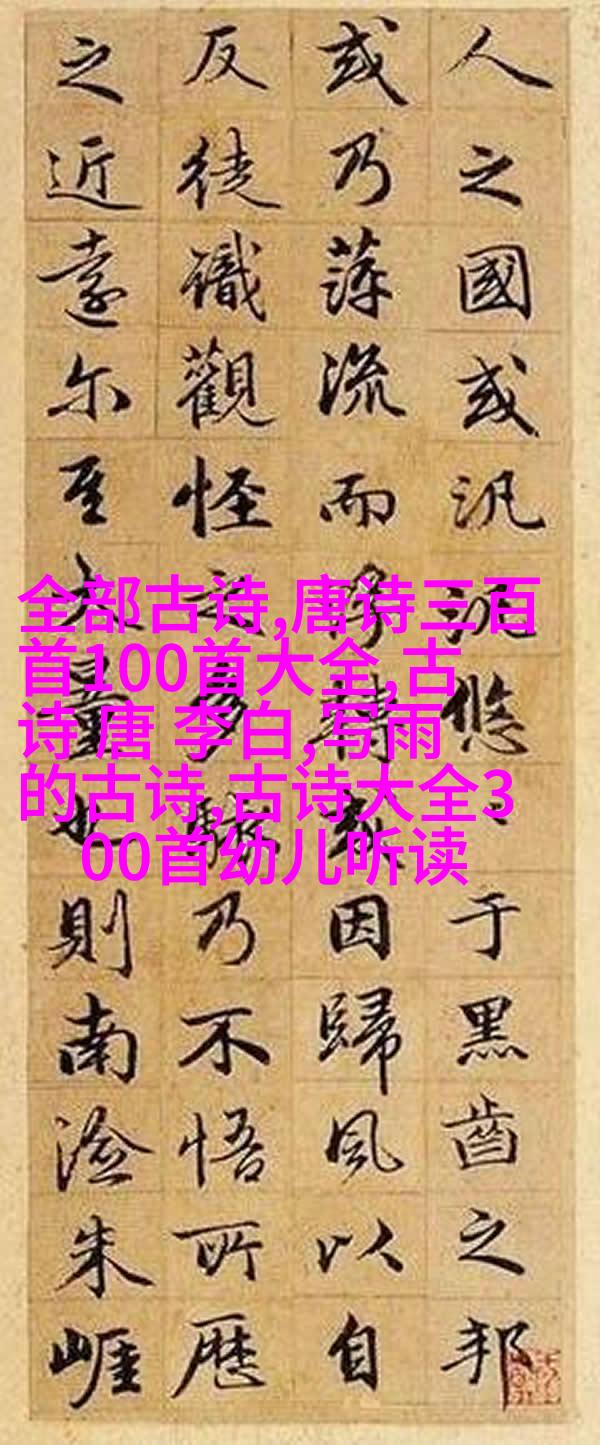 人之國或汎汎悠〻于黑齒之邦
或乃萍流而浮轉或因歸風以自
反徒識觀怪之多駭乃不悟所歷
之近遠尔大量也則南澰朱崕
全部古诗,唐诗三百
首100首大全,古
诗 唐 李白,写雨
的古诗,古诗大全3
00首幼儿听读